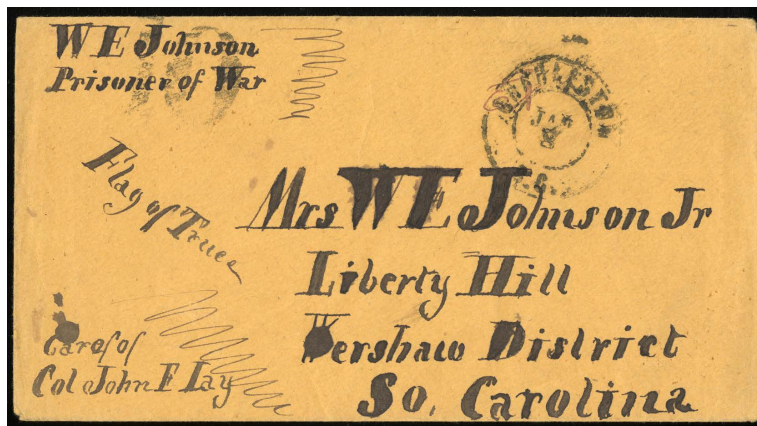 W E Johnson
Prisoner of War
10
CHARLESTON
JAN
S.C.
Flag of Truce
Mrs W E Johnson Jr
Liberty Hill
Kershaw District
So. Carolina
Care of of
Col John F Lay